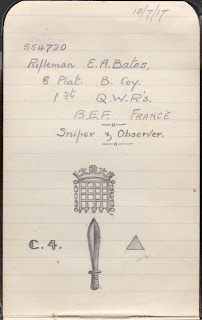 10/7/17
554720
Rifleman E.A. Bates,
8 Plat. B. Coy.
1st Q.W.R's.
B.E.F. FRANCE
Sniper & Observer.
C.4.